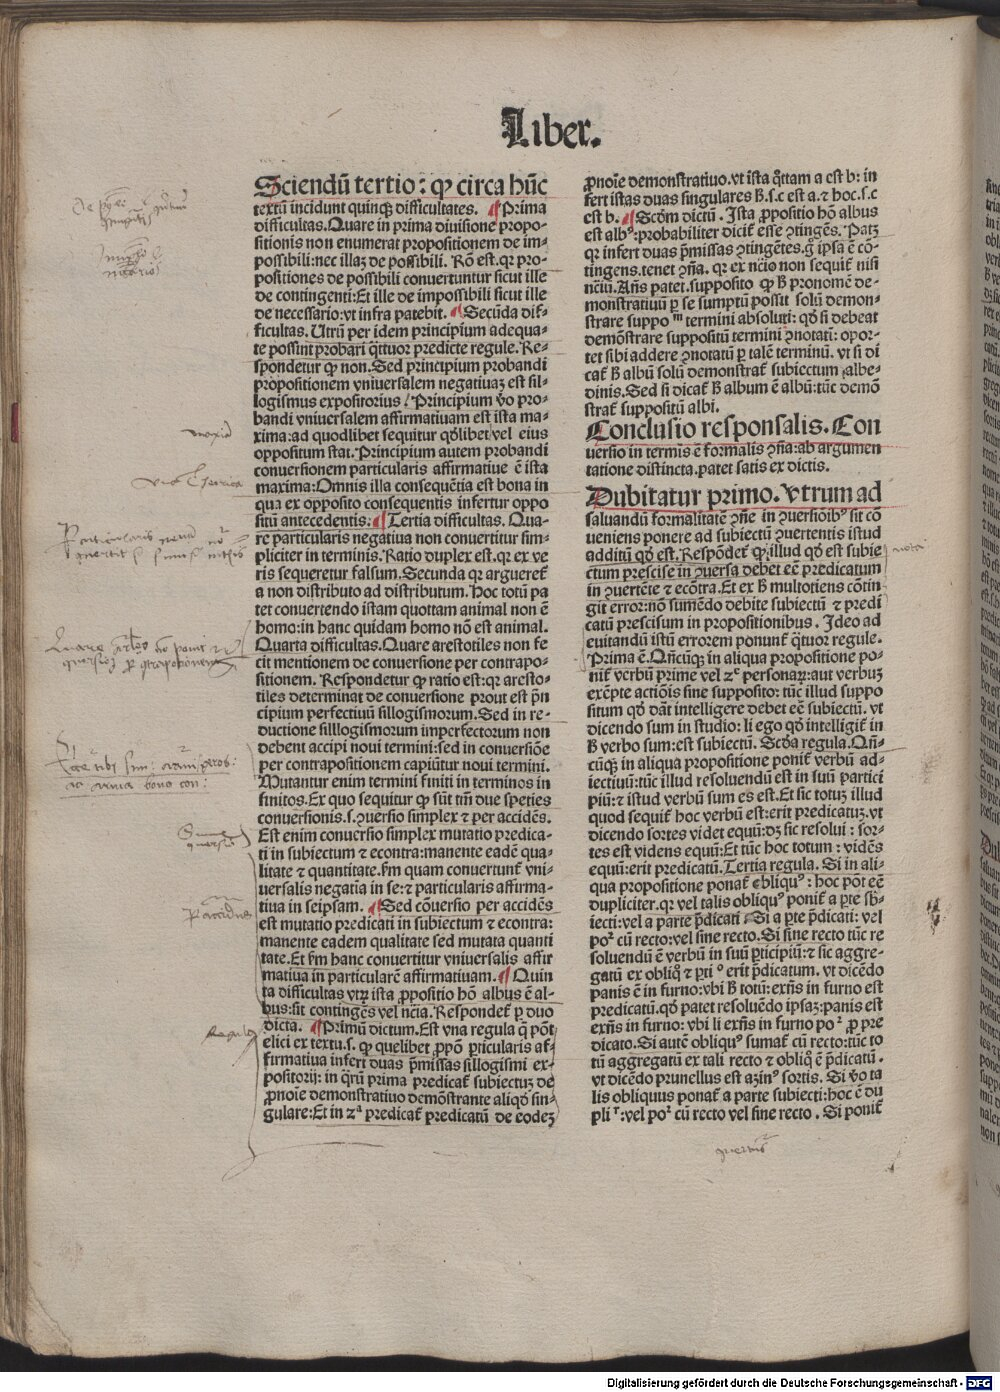 Liber.
Sciendū tertio: qp circa hūc
textū incidunt quinqȝ difficultates. ¶ Prima
difficultas. Quare in prima diuisione propo-
sitionis non enumerat propositionem de im-
possibili: nec illaȝ de possibili. Rō est. qr pro-
positiones de possibili conuertuntur sicut ille
de contingenti: Et ille de impossibili sicut ille
de necessario: vt infra patebit. ¶ Secūda dif-
ficultas. Utrū per idem principium adequa-
te possint probari q̄ttuor predicte regule. Re-
spondetur qp non. Sed principium probandi
propositionem vniuersalem negatiuaȝ est sil-
logismus expositorius / Principium v̄o pro-
bandi vniuersalem affirmatiuam est ista ma-
xima: ad quodlibet sequitur qd̄libet vel eius
oppositum stat. Principium autem probandi
conuersionem particularis affirmatiue ē ista
maxima: Omnis illa consequētia est bona in
qua ex opposito consequentis infertur oppo
sitū antecedentis: ¶ Tertia difficultas. Qua-
re particularis negatiua non conuertitur sim-
pliciter in terminis. Ratio duplex est. qr ex ve
ris sequeretur falsum. Secunda qr argueret̄
a non distributo ad distributum. Hoc totū pa
tet conuertendo istam quottam animal non ē
homo: in hanc quidam homo nō est animal.
Quarta difficultas. Quare arestotiles non fe
cit mentionem de conuersione per contrapo-
sitionem. Respondetur qp ratio est: qr aresto-
tiles determinat de conuersione prout est p̄n
cipium perfectiuū sillogismorum. Sed in re-
ductione silllogismorum imperfectorum non
debent accipi noui termini: sed in conuersiōe
per contrapositionem capiūtur noui termini.
Mutantur enim termini finiti in terminos in
finitos. Et quo sequitur qp sūt tm̄ due species
conuersionis. s. ꝯuersio simplex ⁊ per accidēs.
Est enim conuersio simplex mutatio predica-
ti in subiectum ⁊ econtra: manente eadē qua-
litate ⁊ quantitate. fm quam conuertunt̄ vni-
uersalis negatia in se: ⁊ particularis affirma-
tiua in seipsam. ¶ Sed cōuersio per accidēs
est mutatio predicati in subiectum ⁊ econtra:
manente eadem qualitate sed mutata quanti
tate. Et fm hanc conuertitur vniuersalis affir
matiua in particularē affirmatiuam. ¶ Quin
ta difficultas vtꝝ ista ꝓpositio hō albus ē al-
bus: sit contingēs vel nēcia. Respondet̄ ꝑ duo
dicta. ¶ Primū dictum. Est vna regula q̄ pōt
elici ex textu. s. qp quelibet ꝓpō ꝑticularis af-
firmatiua infert duas p̄missas sillogismi ex-
positorij: in q̄rū prima predicat̄ subiectuȝ de
ꝓnoīe demonstratiuo demōstrante aliqd̄ sin-
gulare: Et in 2ᵃ predicat̄ predicatū de eodeȝ
ꝓnoīe demonstratiuo. vt ista q̄ttam a est b: in
fert istas duas singulares h̄. s. c est a. ⁊ hoc. s. c
est b. ¶ Scōm dictū. Ista ꝓpositio hō albus
est albꝰ: probabiliter dicit̄ esse ꝯtingēs. Patȝ
qr infert duas p̄missas ꝯtingētes. g̊ ipsa ē cō-
tingens. tenet ꝯn̄a. qr ex nēcio non sequit̄ nisi
nēciū. Ans patet. supposito qp h̄ pronomē de-
monstratiuū ꝑ se sumptū possit solū demon-
strare suppoᵐ termini absoluti: qd̄ si debeat
demōstrare suppositū termini ꝯnotati: opor-
tet sibi addere ꝯnotatū ꝑ talē terminū. vt si di
cat̄ h̄ albū solū demonstrat̄ subiectum albe-
dinis. Sed si dicat̄ h̄ album ē albū: tūc demō
strat̄ suppositū albi.
Conclusio responsalis. Con
uersio in termis ē formalis ꝯn̄a: ab argumen
tatione distincta. patet satis ex dictis.
Dubitatur primo. Vtrum ad
saluandū formalitatē ꝯn̄e in ꝯuersiōibꝰ sit cō
ueniens ponere ad subiectū ꝯuertentis istud
additū qd̄ est. Respōdet̄ qp illud qd̄ est subie
ctum prescise in ꝯuersa debet eē predicatum
in ꝯuertēte ⁊ ecōtra. Et ex h̄ multotiens cōtin-
git error: nō sumēdo debite subiectū ⁊ predi
catū prescisum in propositionibus. Ideo ad
euitandū istū errorem ponunt̄ q̄tuor regule.
Prima ē. Qn̄cūqȝ in aliqua propositione po-
nit̄ verbū prime vel 2ᵉ personaꝝ: aut verbuȝ
excēpte actiōis sine supposito: tūc illud suppo
situm qd̄ dāt intelligere debet eē subiectū. vt
dicendo sum in studio: li ego qd̄ intelligit̄ in
h̄ verbo sum: est subiectū. Scd̄a regula. Qn̄-
cūqȝ in aliqua propositione ponit̄ verbū ad-
iectiuū: tūc illud resoluendū est in suū partici
piū: ⁊ istud verbū sum es est. Et sic totuȝ illud
quod sequit̄ hoc verbū est: erit predicatuȝ. vt
dicendo sortes videt equū: dȝ sic resolui: sor-
tes est videns equū: Et tūc hoc totum: vidēs
equū: erit predicatū. Tertia regula. Si in ali-
qua propositione ponat̄ obliquꝰ: hoc pōt eē
dupliciter. qr vel talis obliquꝰ ponit̄ a ꝑte sb̄-
iecti: vel a parte p̄dicati. Si a ꝑte p̄dicati: vel
poʳ cū recto: vel sine recto. Si sine recto tūc re
soluendū ē verbū in suū ꝑticipiū: ⁊ sic aggre-
gatū ex obliq̊ ⁊ ꝑti° erit p̄dicatum. vt dicēdo
panis ē in furno: vbi h̄ totū: exn̄s in furno est
predicatū. qd̄ patet resoluēdo ipsaȝ: panis est
exn̄s in furno: vbi li exn̄s in furno poʳ ꝓ pre
dicato. Si autē obliquꝰ sumat̄ cū recto: tūc to
tū aggregatū ex tali recto ⁊ obliq̊ ē p̄dicatū.
vt dicēdo prunellus est azinꝰ sortis. Si v̄o ta
lis obliquus ponat̄ a parte subiecti: hoc ē du
pliʳ: vel poʳ cū recto vel sine recto. Si ponit̄
nota
Regula
Digitalisierung gefördert durch die Deutsche Forschungsgemeinschaft - DFG